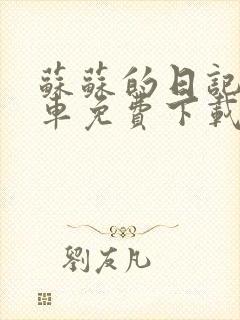 蘇蘇的日記
車免費下載
劉友凡